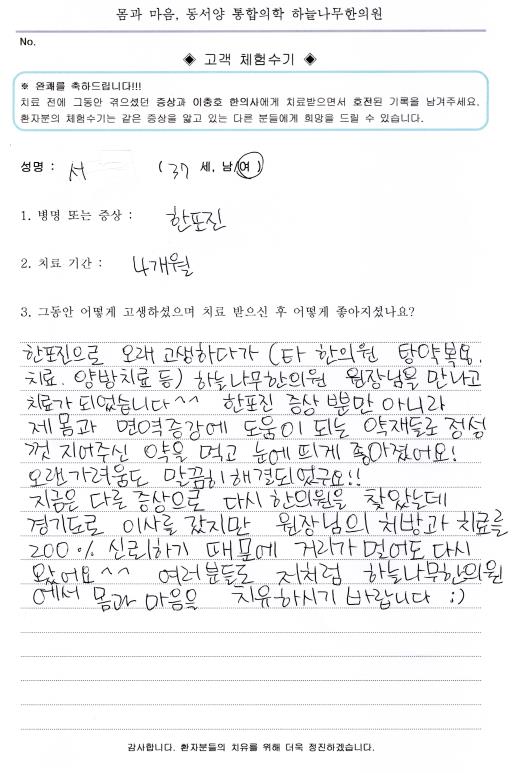 몸과 마음, 동서양 통합의학 하늘나무한의원
No.
◈ 고객 체험수기 ◈
※ 완쾌를 축하드립니다!!!
치료 전에 그동안 겪으셨던 증상과 이충호 한의사에게 치료받으면서 호전된 기록을 남겨주세요.
환자분의 체험수기는 같은 증상을 앓고 있는 다른 분들에게 희망을 드릴 수 있습니다.
성명 : 서 ( 37 세, 남/여 )
1. 병명 또는 증상 : 한포진
2. 치료 기간 : 4개월
3. 그동안 어떻게 고생하셨으며 치료 받으신 후 어떻게 좋아지셨나요?
한포진으로 오래 고생하다가 (타 한의원 탕약복용,
치료. 양방치료 등) 하늘나무한의원 원장님을 만나고
치료가 되었습니다^^ 한포진 증상 뿐만 아니라
제 몸과 면역증강에 도움이 되는 약재들로 정성
껏 지어주신 약을 먹고 눈에 띄게 좋아졌어요!
오랜가려움도 말끔히 해결되었구요!!
지금은 다른 증상으로 다시 한의원을 찾았는데
경기도로 이사를 갔지만 원장님의 처방과 치료를
200% 신뢰하기 때문에 거리가 멀어도 다시
왔어요^^ 여러분들도 저처럼 하늘나무한의원
에서 몸과 마음을 치유하시기 바랍니다 :)
감사합니다. 환자분들의 치유를 위해 더욱 정진하겠습니다.